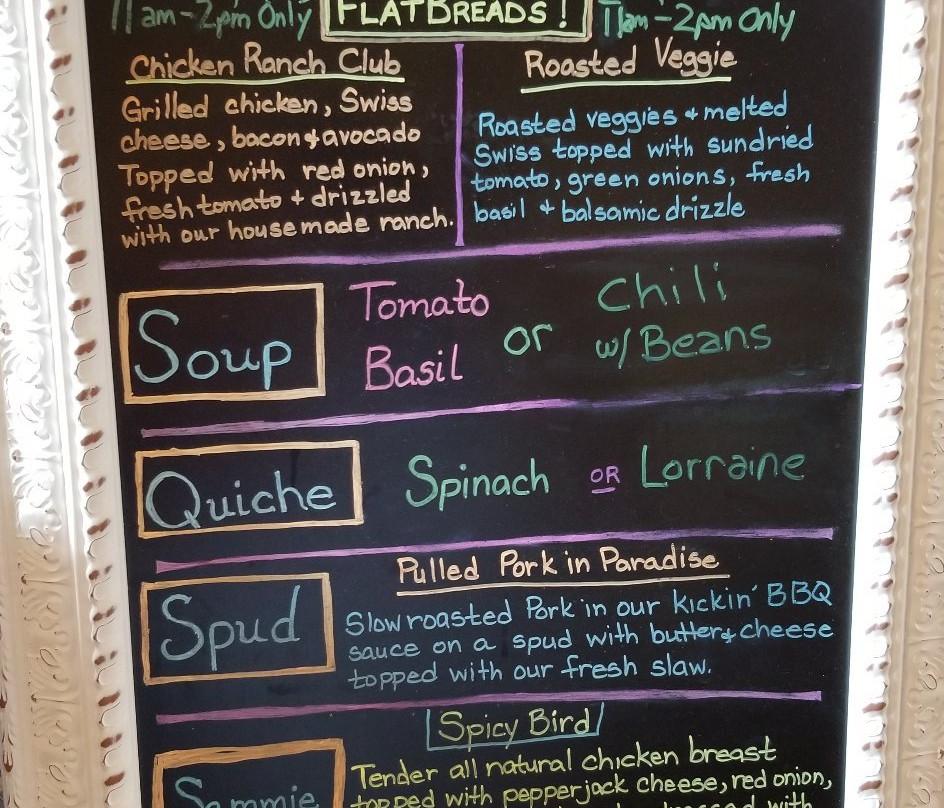 11am-2pm Only FLATBREADS! 11am-2pm Only
Chicken Ranch Club
Grilled chicken, Swiss
cheese, bacon & avocado
Topped with red onion,
fresh tomato + drizzled
with our housemade ranch.
Roasted Veggie
Roasted veggies + melted
Swiss topped with sundried
tomato, green onions, fresh
basil + balsamic drizzle
Soup
Tomato
Basil
or
Chili
w/ Beans
Quiche
Spinach OR Lorraine
Spud
Pulled Pork in Paradise
Slow roasted Pork in our kickin' BBQ
sauce on a spud with butter & cheese
topped with our fresh slaw.
Sammie
Spicy Bird
Tender all natural chicken breast
topped with pepperjack cheese, red onion,
with